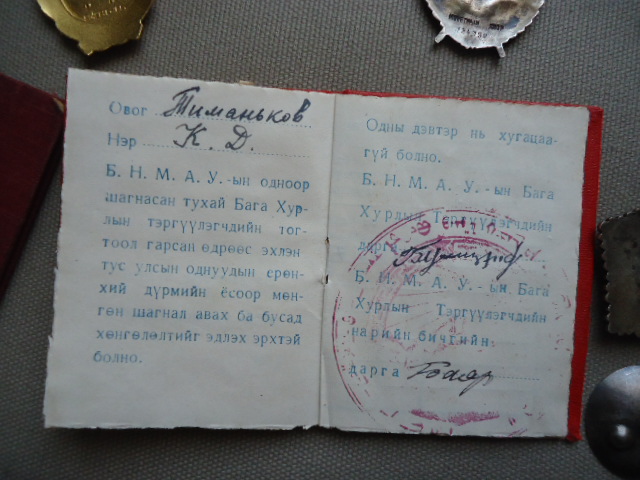 Овог Тиманьков
Нэр К. Д.
Б. Н. М. А. У.-ын одноор
шагнасан тухай Бага Хур-
лын тэргүүлэгчдийн тог-
тоол гарсан өдрөөс эхлэн
тус улсын однуудын ерөн-
хий дүрмийн ёсоор мөн-
гөн шагнал авах ба бусад
хөнгөлөлтийг эдлэх эрхтэй
болно.
Одны дэвтэр нь хугацаа-
гүй болно.
Б. Н. М. А. У.-ын Бага
Хурлын Тэргүүлэгчдийн
дарга
Б. Н. М. А. У.-ын Бага
Хурлын Тэргүүлэгчдийн
нарийн бичгийн
дарга